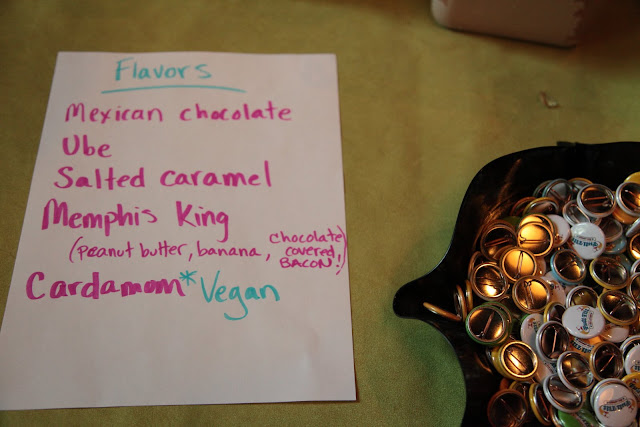 Flavors
Mexican chocolate
Ube
Salted caramel
Memphis King
(peanut butter, banana, chocolate covered BACON!)
Cardamom* Vegan